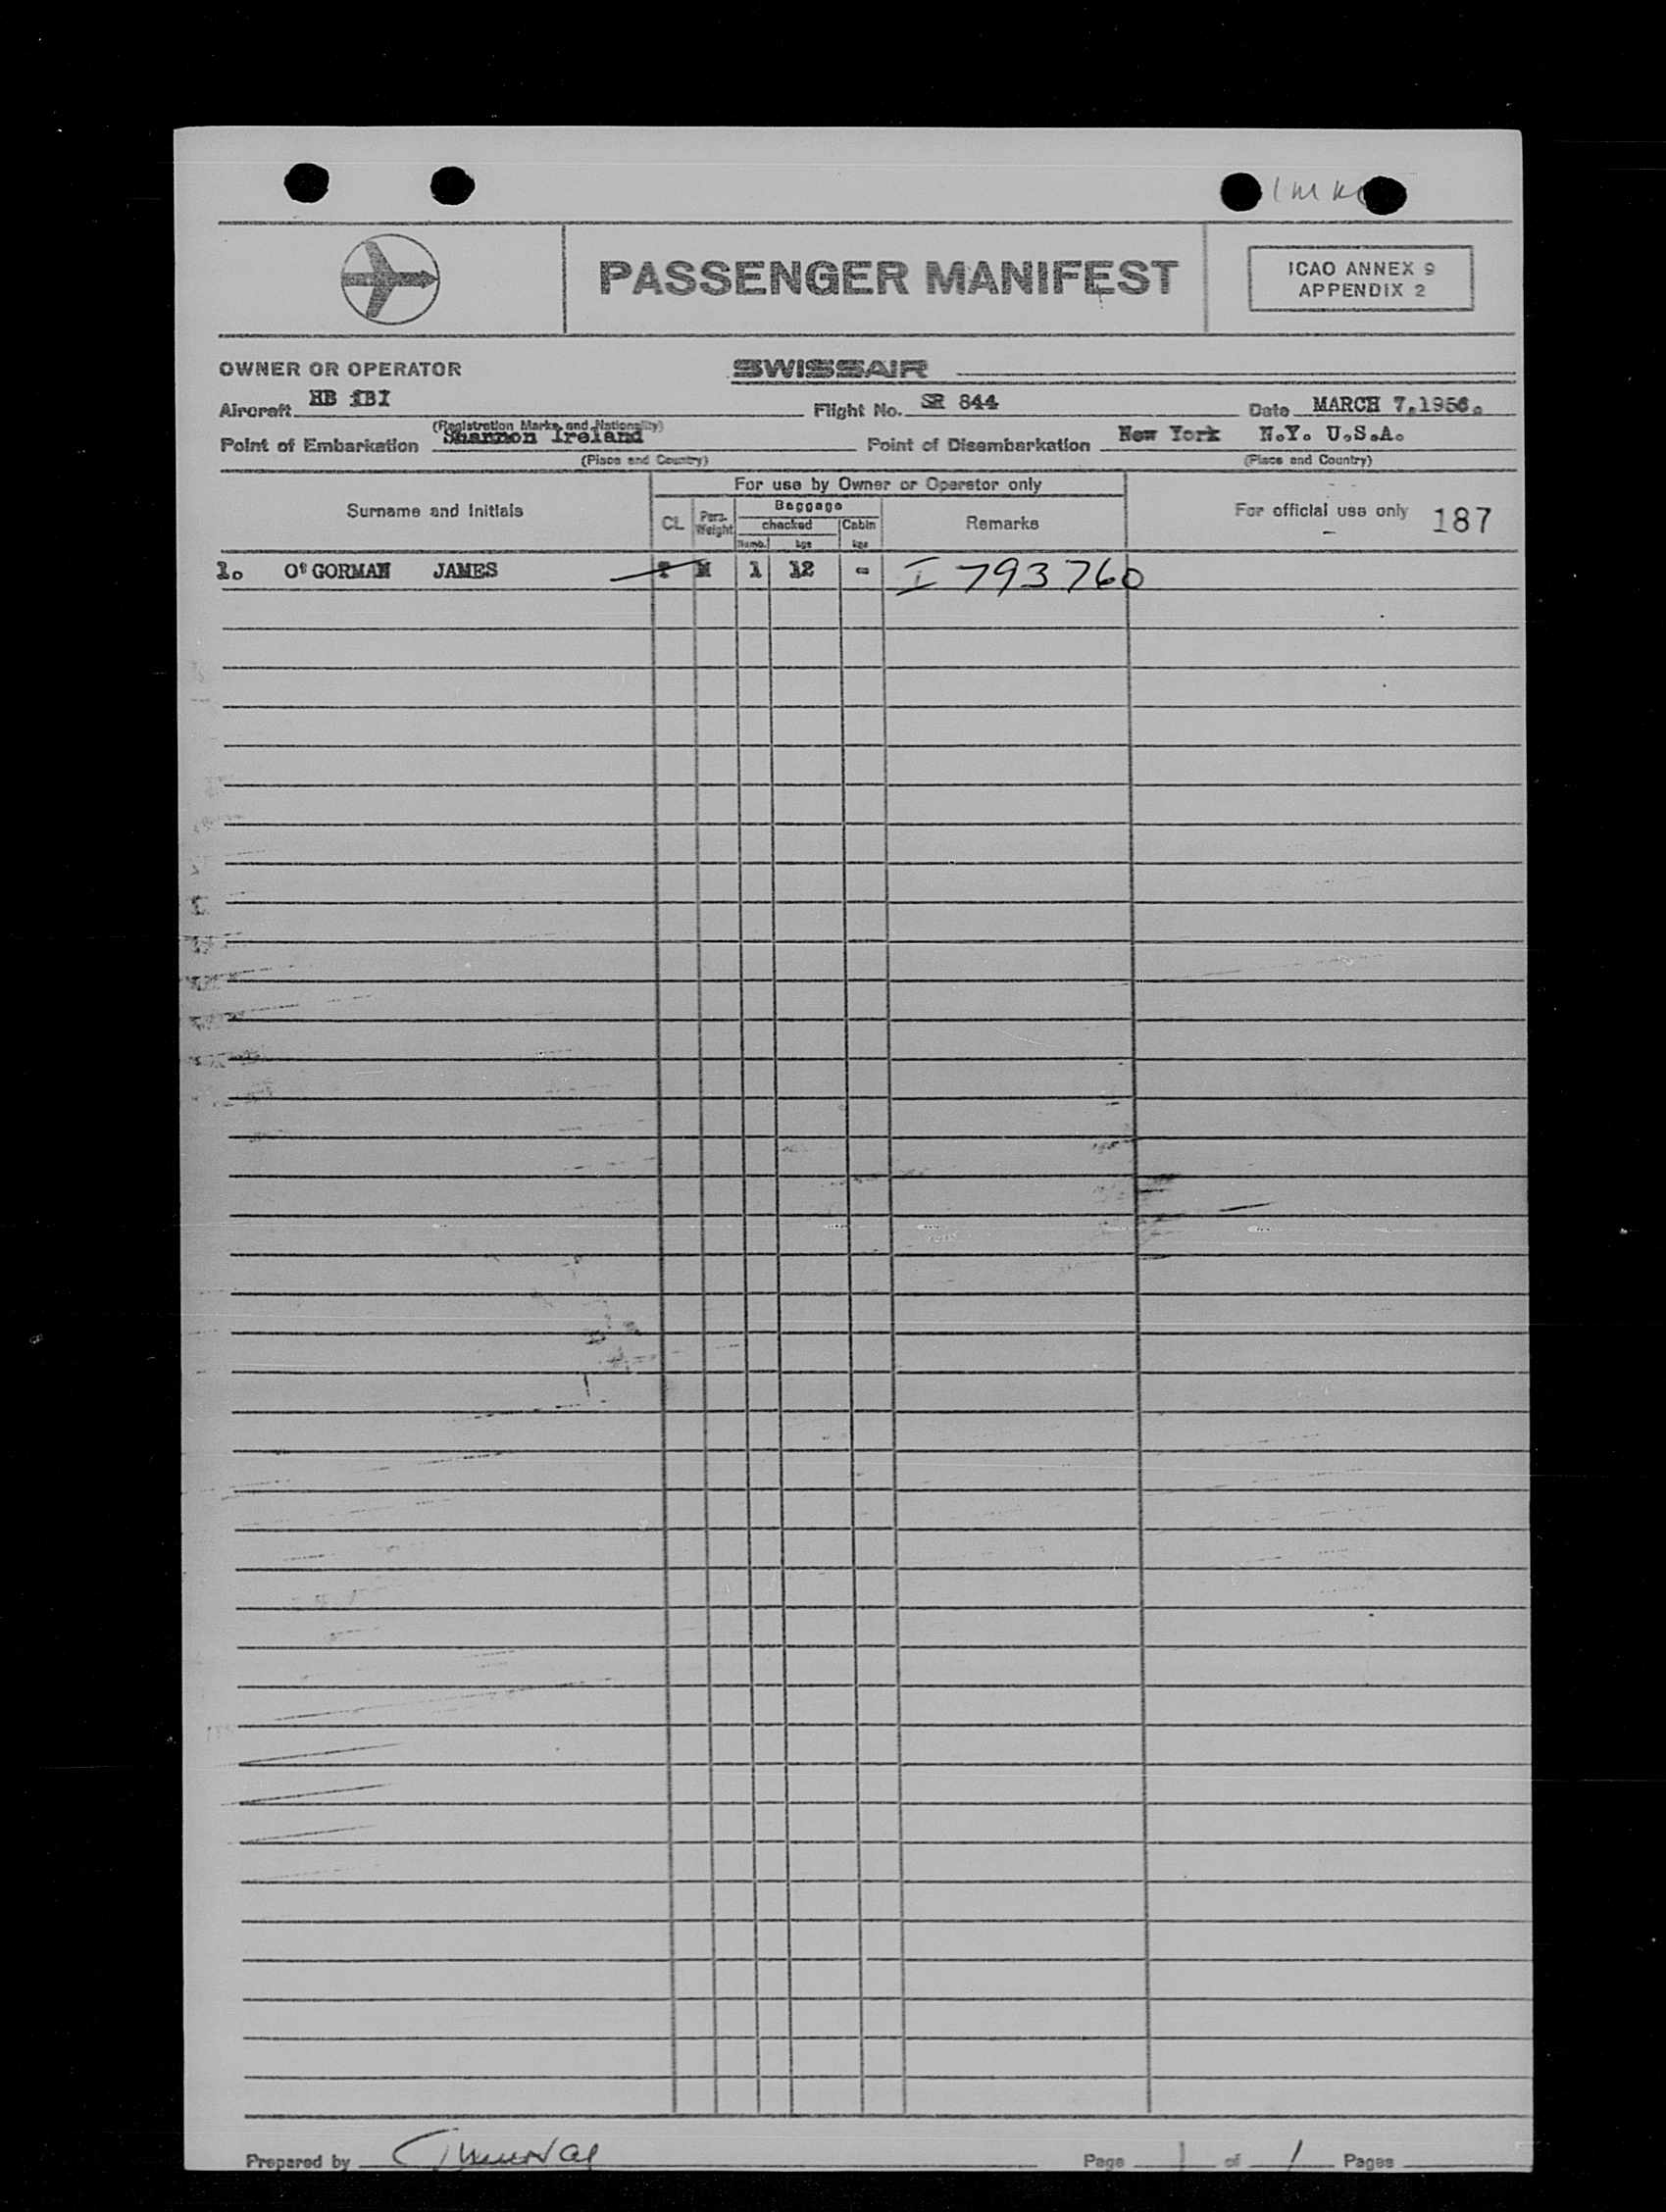 1 M
PASSENGER MANIFEST
ICAO ANNEX 9
APPENDIX 2
OWNER OR OPERATOR SWISSAIR
Aircraft HB IBI Flight No. SR 844 Date MARCH 7.1956.
(Registration Marks and Nationality)
Point of Embarkation Shannon Ireland Point of Disembarkation New York N.Y. U.S.A.
(Place and Country) (Place and Country)
For use by Owner or Operator only
Surname and Initials CL Pers. Weight Baggage checked Numb. kgs Cabin kgs Remarks For official use only 187
1. O'GORMAN JAMES T M 1 12 - I 793760
Prepared by Page 1 of 1 Pages